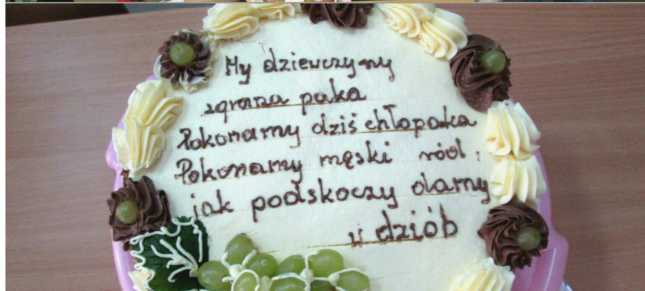 My dziewczyny
zgrana paka
Pokonamy dziś chłopaka
Pokonamy męski ród,
jak podskoczy damy
w dziób